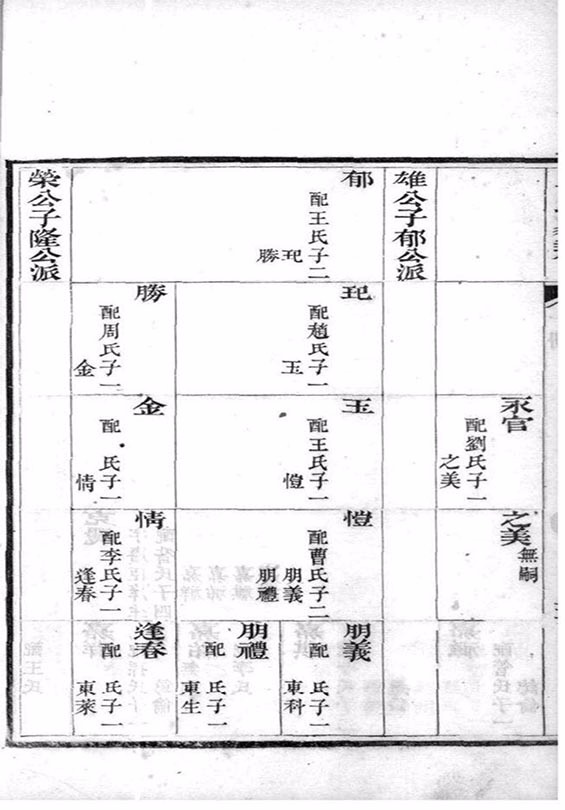 永官
配劉氏子一
之美
之美
無嗣
雄公子郁公派
郁
配王氏子二
玘
勝
玘
配趙氏子一
玉
勝
配周氏子一
金
玉
配王氏子一
愷
金
配 氏子一
情
愷
配曹氏子二
朋義
朋禮
情
配李氏子一
逢春
朋義
配 氏子一
東科
朋禮
配 氏子一
東生
逢春
配 氏子一
東萊
榮公子隆公派